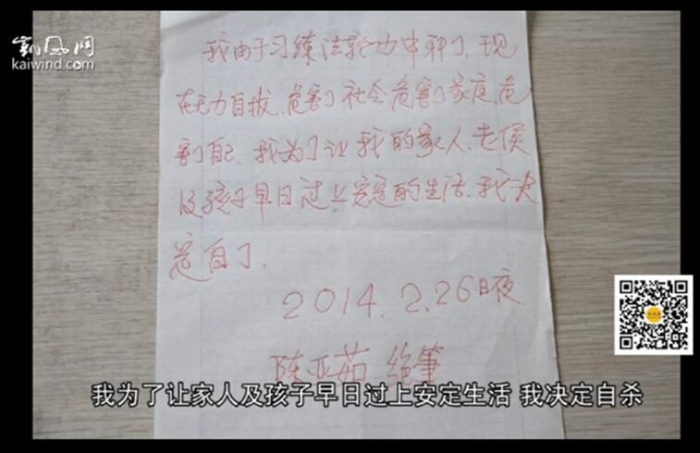 凯风网
kaiwind.com
我由于习练法轮功中邪了，现
在无力自拔，危害了社会，危害了家庭，危
害了自己，我为了让我的家人，老侯
及孩子早日过上安定的生活，我决
定自了，
2014.2.26日夜
陈亚茹 绝笔
我为了让家人及孩子早日过上安定生活 我决定自杀